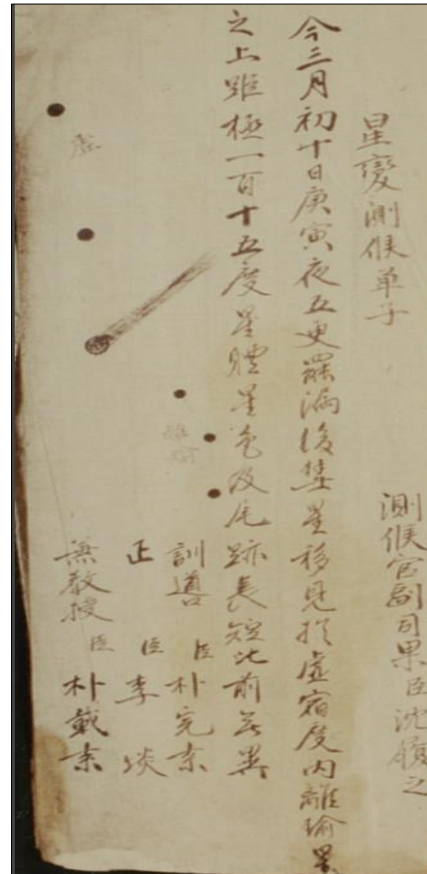 星變測候單子
測候官副司果臣沈䪼之
今三月初十日庚寅夜五更罷漏後彗星移見於虛宿度內離瑜星
之上距極一百十五度星體星色及尾跡長短比前無異
虛
離瑜
訓導 臣 朴完素
正 臣 李琰
兼敎授 臣 朴載素